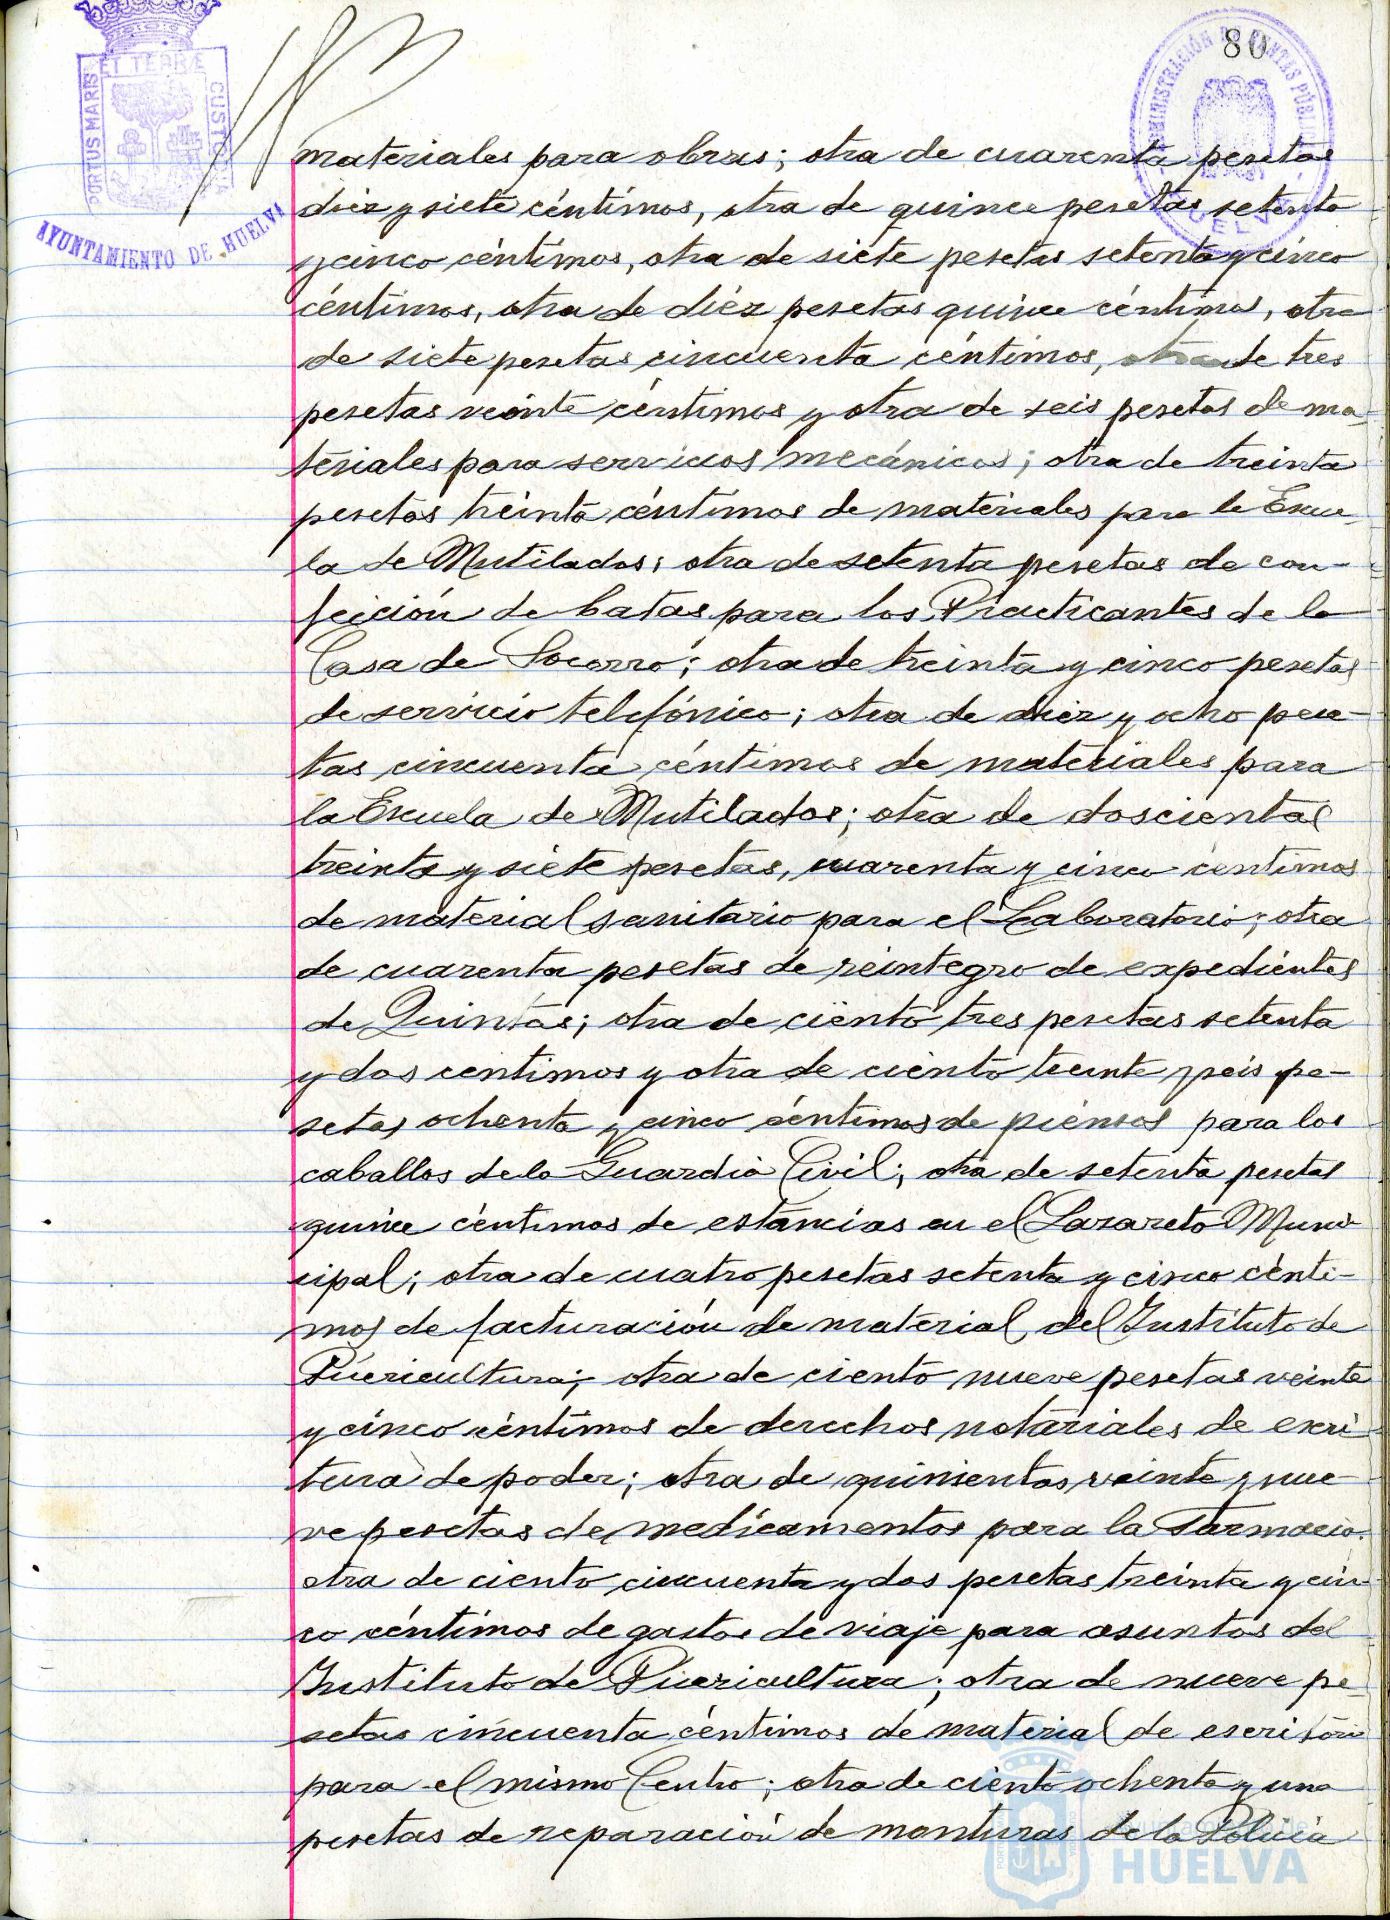 80
ET TERRÆ
PORTUS MARIS
CUSTODIA
AYUNTAMIENTO DE HUELVA
HUELVA
materiales para obras; otra de cuarenta pesetas
diez y siete céntimos, otra de quince pesetas setenta
y cinco céntimos, otra de siete pesetas setenta y cinco
céntimos, otra de diéz pesetas quince céntimos, otra
de siete pesetas cincuenta céntimos, otra de tres
pesetas veinte céntimos y otra de seis pesetas de ma-
teriales para servicios mecánicos; otra de treinta
pesetas treinta céntimos de materiales para la Escue-
la de Mutilados; otra de setenta pesetas de con-
fección de batas para los Practicantes de la
Casa de Socorro; otra de treinta y cinco pesetas
de servicio telefónico; otra de diez y ocho pese-
tas cincuenta céntimos de materiales para
la Escuela de Mutilados; otra de doscientas
treinta y siete pesetas, cuarenta y cinco centimos
de material sanitario para el Laboratorio; otra
de cuarenta pesetas de reintegro de expedientes
de Quintas; otra de ciento tres pesetas setenta
y dos centimos y otra de ciento treinte y seis pe-
setas ochenta y cinco céntimos de piensos para los
caballos de la Guardia Civil; otra de setenta pesetas
quince céntimos de estancias en el Lazareto Muni-
cipal; otra de cuatro pesetas setenta y cinco cénti-
mos de facturación de material del Instituto de
Puericultura; otra de ciento nueve pesetas veinte
y cinco céntimos de derechos notariales de escri-
tura de poder; otra de quinientas veinte y nue-
ve pesetas de medicamentos para la Farmacia.
otra de ciento cincuenta y dos pesetas treinta y cin-
co céntimos de gastos de viaje para asuntos del
Instituto de Puericultura; otra de nueve pe-
setas cincuenta céntimos de material de escritorio
para el mismo Centro; otra de ciento ochenta y una
pesetas de reparación de monturas de la Policía
Ayuntamiento de
HUELVA